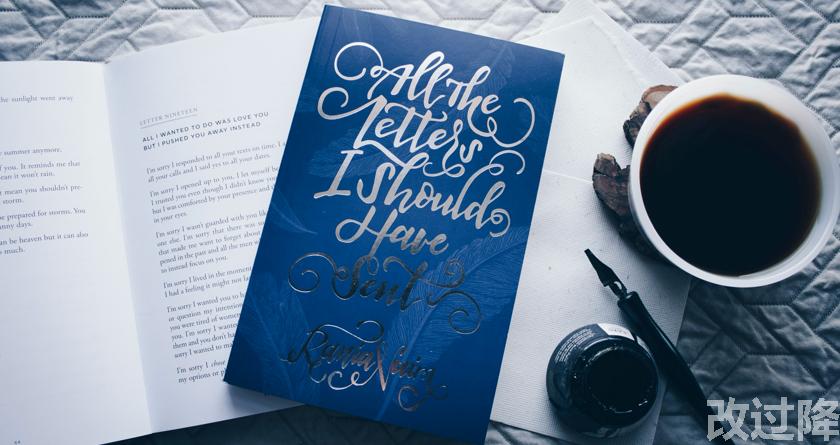 the sunlight went away
summer anymore.
of you. It reminds me that
ean it won't rain.
mean you shouldn't pre-
storm.
be prepared for storms. You
unny days.
an be heaven but it can also
much.
64
LETTER NINETEEN
ALL I WANTED TO DO WAS LOVE YOU
BUT I PUSHED YOU AWAY INSTEAD
I'm sorry I responded to all your texts on time. I
all your calls and I said yes to all your dates.
I'm sorry I opened up to you, I let myself be
I trusted you even though I didn't know you
but I was comforted by your presence and th
in your eyes.
I'm sorry I wasn't guarded with you lik
one else. I'm sorry that there was so
that made me want to forget about
pened in the past and all the men w
to instead focus on you.
I'm sorry I lived in the moment
I had a feeling it might not las
I'm sorry I wanted you to h
or question my intention
you were tired of women
them and you don't ha
sorry I wanted to ma
I'm sorry I chose
my options or p
All the
Letters
I Should
Have
Sent
Rania Naim
改过隆